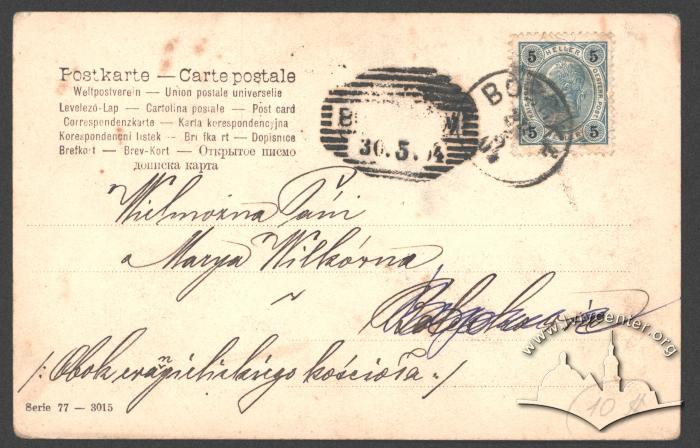 Postkarte — Carte postale
Weltpostverein — Union postale universelle
Levelező-Lap — Cartolina postale — Post card
Correspondenzkarte — Karta korespondencyjna
Korespondenční listek — Bri fka rt — Dopisnice
Brefkort — Brev-Kort — Открытое письмо
дописна карта
5 HELLER 5
5 5
30.5.04
Wielmożna Pani
Marya Wilkówna
/: Obok ewangielickiego kościoła :/
Serie 77 — 3015
www.lvivcenter.org
10